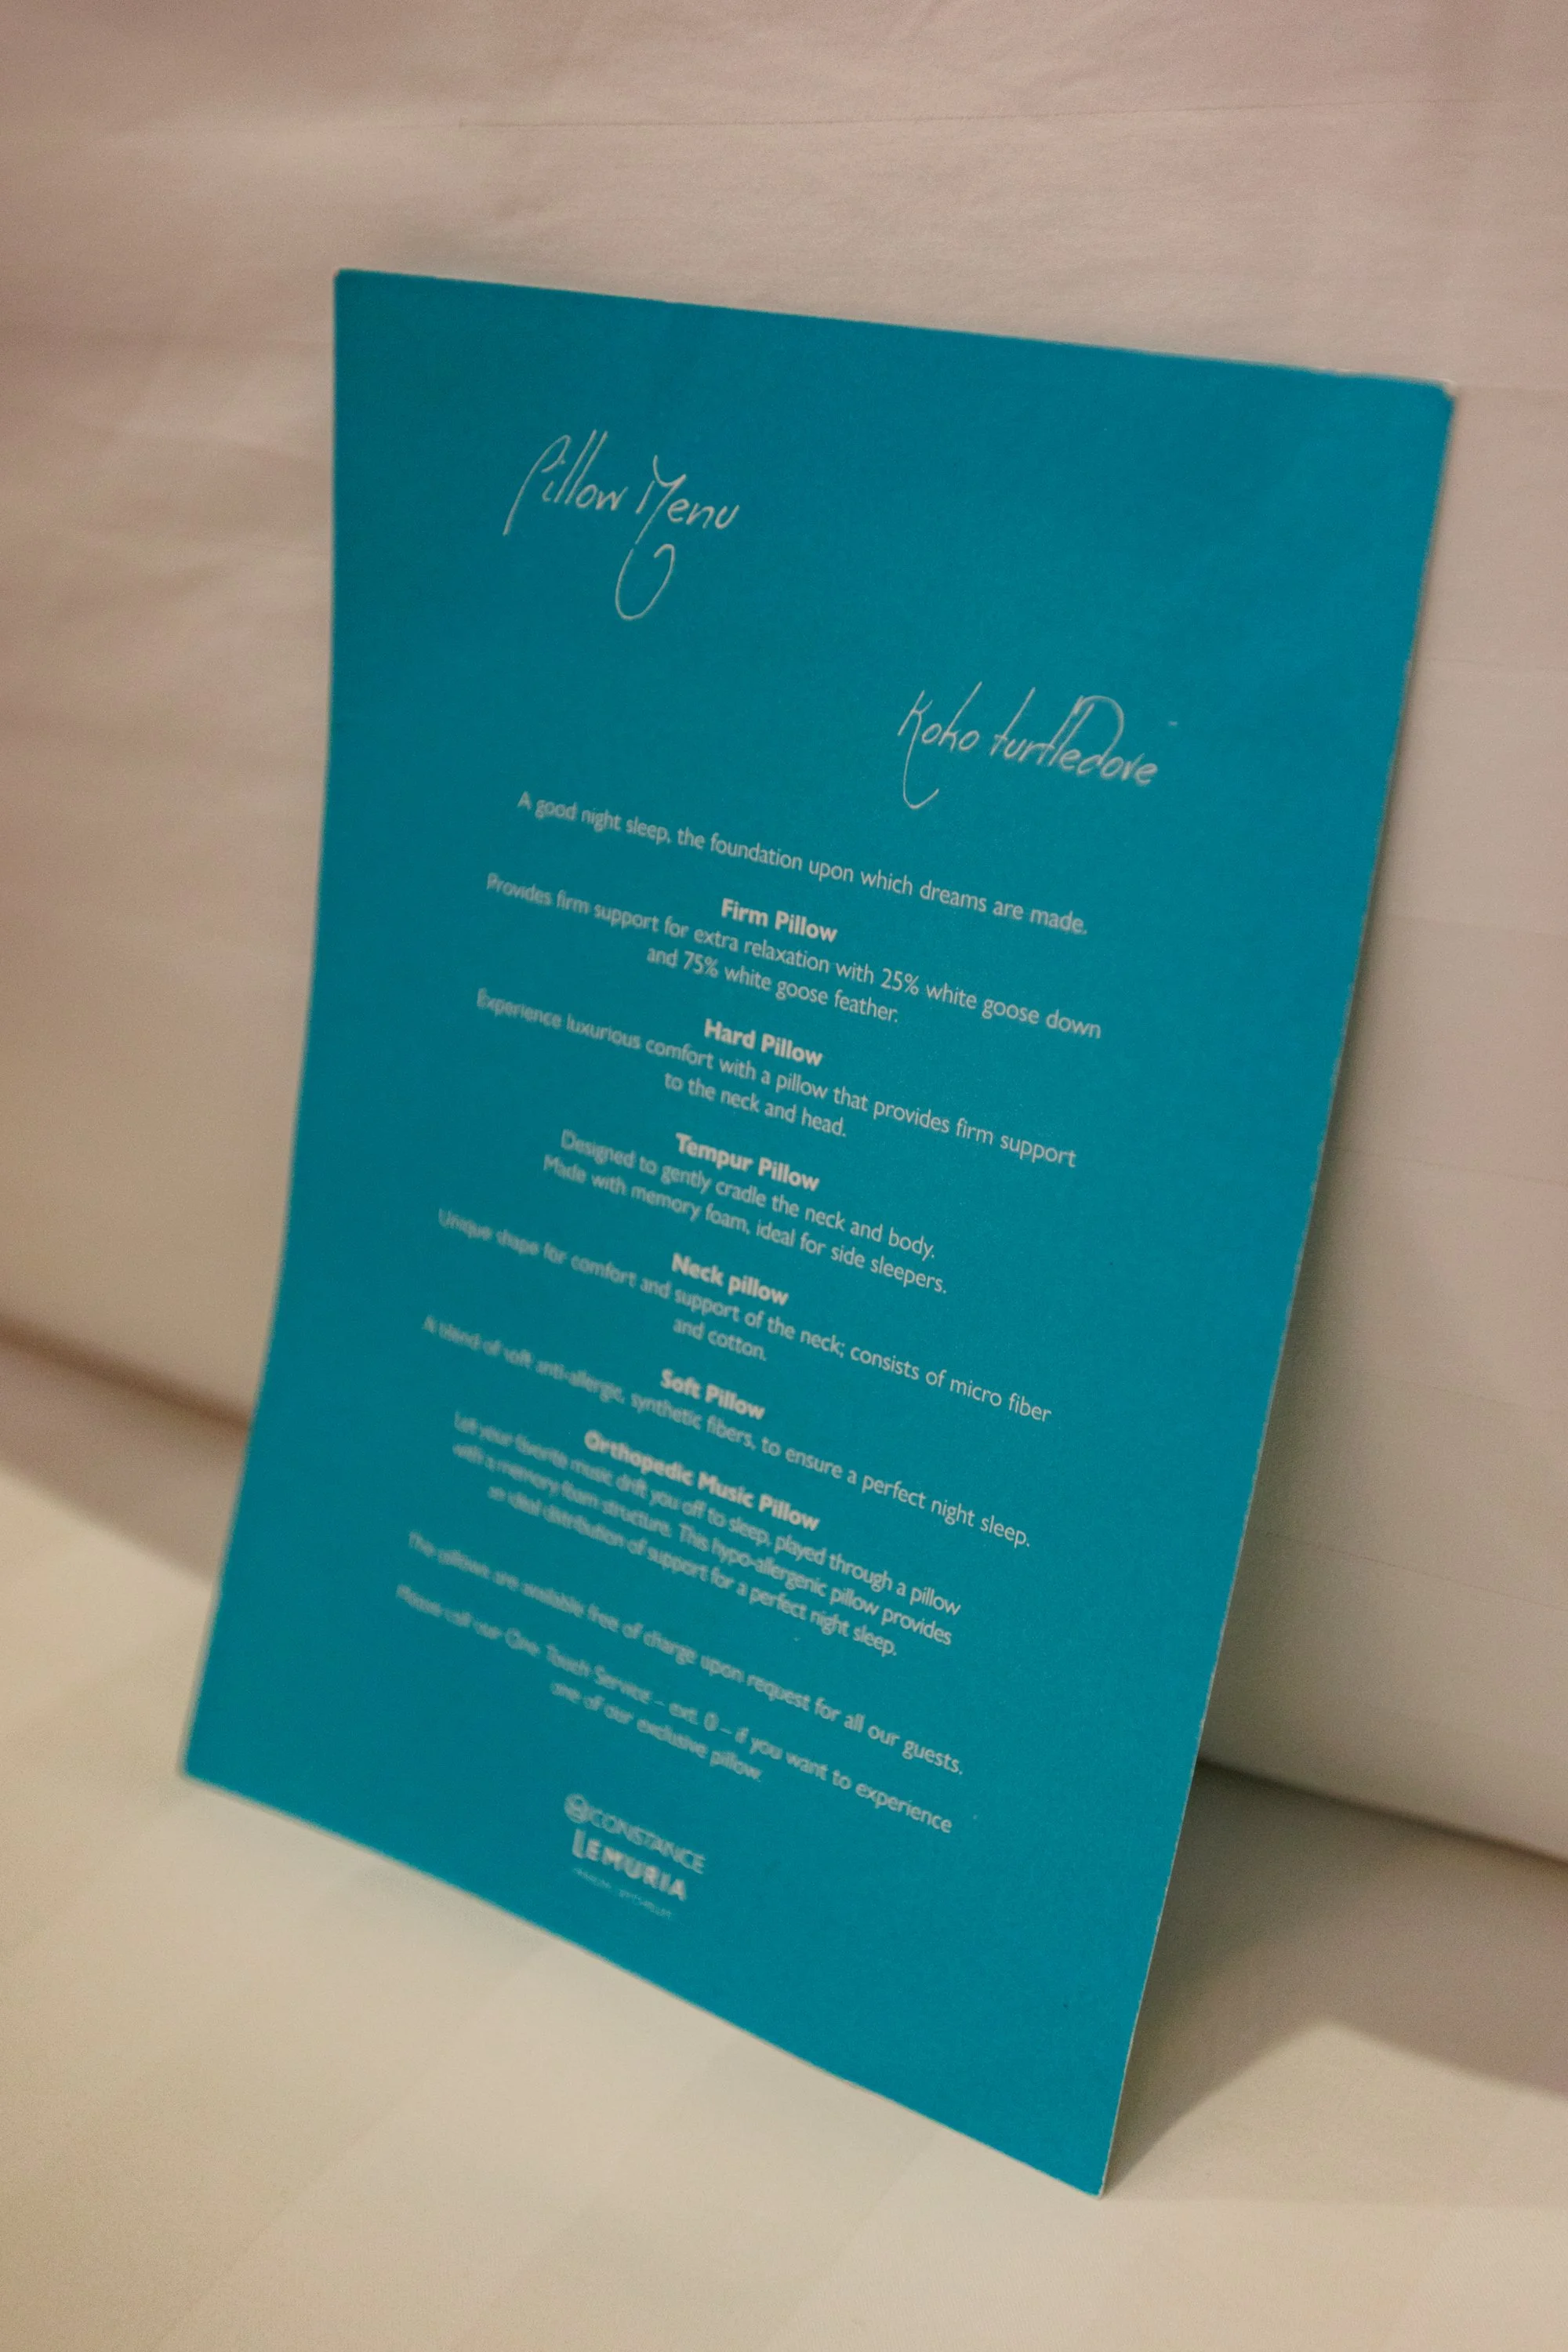 Pillow Menu
Koko turtledove
A good night sleep, the foundation upon which dreams are made.
Firm Pillow
Provides firm support for extra relaxation with 25% white goose down
and 75% white goose feather.
Hard Pillow
Experience luxurious comfort with a pillow that provides firm support
to the neck and head.
Tempur Pillow
Designed to gently cradle the neck and body.
Made with memory foam, ideal for side sleepers.
Neck pillow
Unique shape for comfort and support of the neck; consists of micro fiber
and cotton.
Soft Pillow
A blend of soft anti-allergic, synthetic fibers, to ensure a perfect night sleep.
Orthopedic Music Pillow
Let your favorite music drift you off to sleep, played through a pillow
with a memory foam structure. This hypo-allergenic pillow provides
an ideal distribution of support for a perfect night sleep.
The pillows are available free of charge upon request for all our guests.
Please call our One Touch Service – ext. 0 – if you want to experience
one of our exclusive pillow.
CONSTANCE
LEMURIA